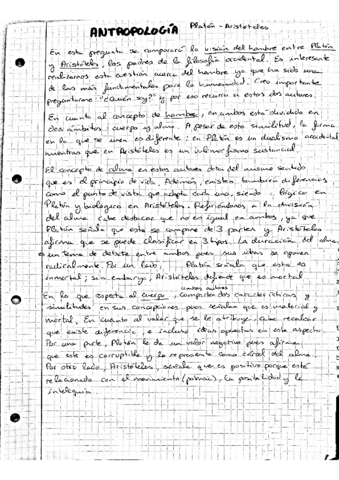 ANTROPOLOGÍA Platón - Aristóteles
En esta pregunta se comparará la visión del hombre entre Platón
y Aristóteles, los padres de la filosofía occidental. Es interesante
realizarnos esta cuestión acerca del hombre ya que ha sido una
de las más fundamentales para la humanidad. Creo importante
preguntarme: "¿Quién soy?" y por eso recurro a estos dos autores.
En cuanto al concepto de hombre, en ambos está dividido en
dos ámbitos: cuerpo y alma. A pesar de esta similitud, la forma
en la que se unen es diferente: en Platón es un dualismo accidental
mientras que en Aristóteles es un hilemorfismo sustancial.
El concepto de alma en estos autores dota del mismo sentido
que es el principio de vida. Además, existen también diferencias
como el punto de vista que adopta cada uno, siendo lógico en
Platón y biológico en Aristóteles. Refiriéndonos a la división
del alma cabe destacar que no es igual en ambos, ya que
Platón señala que esta se compone de 3 partes y Aristóteles
afirma que se puede clasificar en 3 tipos. La duración del alma
un tema de debate entre ambos pues sus ideas se oponen
radicalmente. Por un lado, Platón señala que esta es
inmortal; sin embargo, Aristóteles defiende que es mortal
ambos autores
En lo que respecta al cuerpo, comparten dos características y
similitudes en sus concepciones pues señalan que es material y
mortal. En cuanto al valor que se le atribuye, cabe recalcar
que existe diferencia, e incluso ideas opuestas en este aspecto.
Por una parte, Platón le da un valor negativo pues afirma
que este es corruptible y lo representa como cárcel del alma.
Por otro lado, Aristóteles, señala que es positivo porque está
relacionado con el movimiento la posibilidad y la